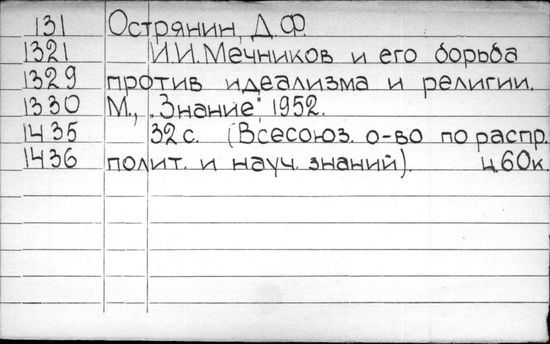 131 Острянин, Д.Ф.
1321 И.И. Мечников и его борьба
1329 против идеализма и религии.
1330 М., „Знание“, 1952.
1435 32 с. (Всесоюз. о-во по распр.
1436 полит. и науч. знаний). ц. 60к.